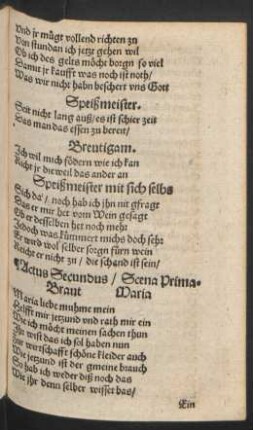 Vnd jr mügt vollend richten zu
Von stundan ich jetz gehen wil
Ob ich des gelts möcht borgn so viel
Damit jr kaufft was noch ist noth/
Was wir nicht habn beschert vns Gott
Speißmeister.
Seit nicht lang auß/es ist schier zeit
Das man das essen zu bereit/
Breutigam.
Ich wil mich födern wie ich kan
Richt jr dieweil das ander an
Speißmeister mit sich selbs
Sich da/ noch hab ich jhn nit gfragt
Das er mir het vom Wein gesagt
Ob er desselben het noch mehr
Jedoch was kümmert michs doch sehr
Er wird wol selber sorgn fürn wein
Reicht er nicht zu/ die schand ist sein/
Actus Secundus/ Scena Prima.
Braut Maria
Maria liebe muhme mein
Helfft mir jetzund vnd rath mir ein
Wie ich möcht meinen sachen thun
Ein